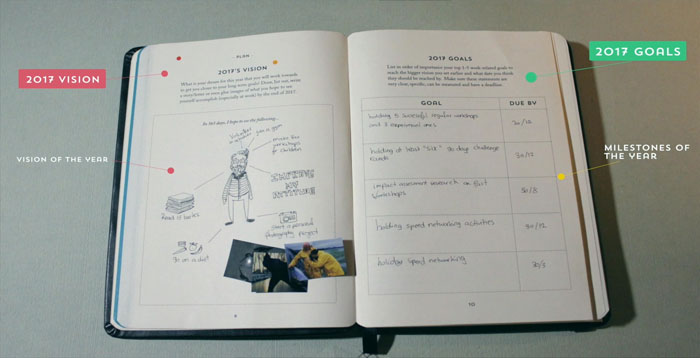 2017 VISION
VISION OF THE YEAR
PLAN
2017'S VISION
What is your desire for this year that you will work towards
to get you closer to your long term goals? Draw, list out, write
yourself accomplish (especially at work) by the end of 2017.
In 365 days, I hope to see the following...
gym
for children
Read 12 books
Go on a diet
start a personal
photography project
9
2017 GOALS
List in order of importance your top 3-5 work-related goals to
reach the bigger vision you set earlier and what date you think
they should be reached by. Make sure these statements are
very clear, specific, can be measured and have a deadline.
GOAL
DUE BY
holding 10 successful regular workshops
and 3 experimental ones
30/12
holding at least "six" 30 days challenge
rounds
30/12
impact assessment research on Exit
workshops
holding speed networking activities
30/12
holding speed networking
10
2017 GOALS
MILESTONES OF
THE YEAR